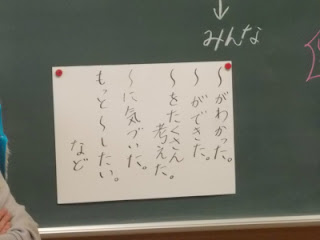 みんな
〜がわかった。
〜ができた。
〜をたくさん
考えた。
〜に気づいた。
もっと〜したい。
など